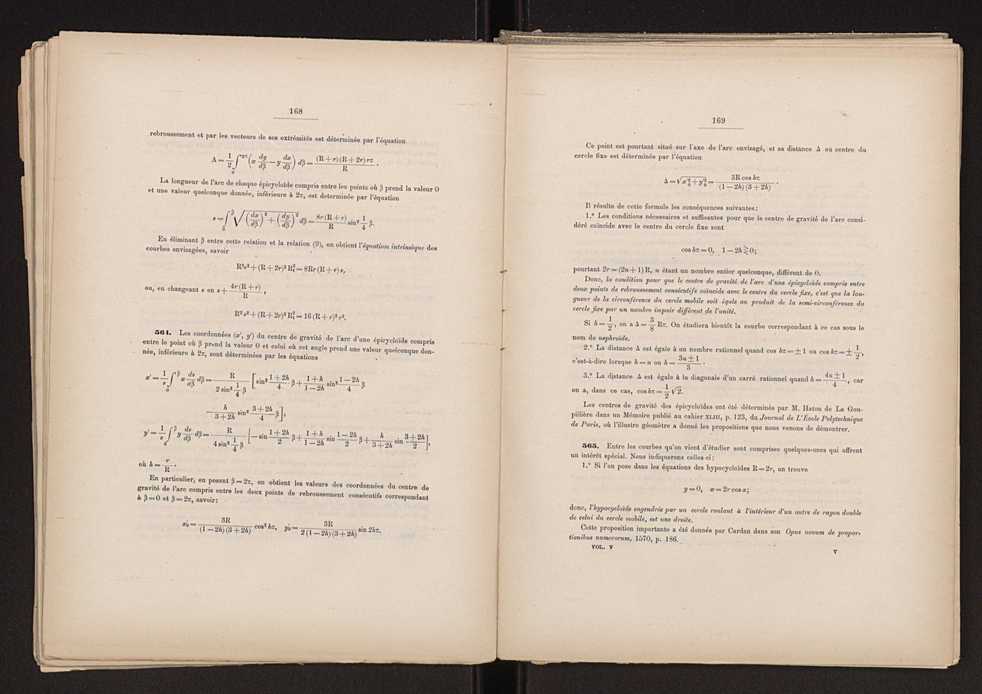 168
rebroussement et par les vecteurs de ses extrémités est déterminée par l'équation
A = 1/2 ∫₀^{2π} (x dy/dβ — y dx/dβ) dβ = (R + r)(R + 2r) rπ / R .
La longueur de l'arc de chaque épicycloïde compris entre les points où β prend la valeur 0
et une valeur quelconque donnée, inférieure à 2π, est déterminée par l'équation
s = ∫₀^β √((dx/dβ)² + (dy/dβ)²) dβ = 8r(R + r)/R sin² 1/4 β.
En éliminant β entre cette relation et la relation (9), on obtient l'équation intrinsèque des
courbes envisagées, savoir
R²s² + (R + 2r)² R₁² = 8Rr(R + r) s,
ou, en changeant s en s + 4r(R + r)/R ,
R²s² + (R + 2r)² R₁² = 16(R + r)² r².
564. Les coordonnées (x', y') du centre de gravité de l'arc d'une épicycloïde compris
entre le point où β prend la valeur 0 et celui où cet angle prend une valeur quelconque don-
née, inférieure à 2π, sont déterminées par les équations
x' = 1/s ∫₀^β x ds/dβ dβ = R / (2 sin² 1/4 β) [sin² (1 + 2h)/4 β + (1 + h)/(1 — 2h) sin² (1 — 2h)/4 β
— h/(3 + 2h) sin² (3 + 2h)/4 β],
y' = 1/s ∫₀^β y ds/dβ dβ = R / (4 sin² 1/4 β) [— sin (1 + 2h)/2 β + (1 + h)/(1 — 2h) sin (1 — 2h)/2 β + h/(3 + 2h) sin (3 + 2h)/2],
où h = r/R .
En particulier, en posant β = 2π, on obtient les valeurs des coordonnées du centre de
gravité de l'arc compris entre les deux points de rebroussement consécutifs correspondant
à β = 0 et β = 2π, savoir:
x₀' = 3R / ((1 — 2h)(3 + 2h)) cos² hπ, y₀' = 3R / (2(1 — 2h)(3 + 2h)) sin 2hπ.
169
Ce point est pourtant situé sur l'axe de l'arc envisagé, et sa distance Δ au centre du
cercle fixe est déterminée par l'équation
Δ = √(x₀'² + y₀'²) = 3R cos hπ / ((1 — 2h)(3 + 2h)) .
Il résulte de cette formule les conséquences suivantes:
1.° Les conditions nécessaires et suffisantes pour que le centre de gravité de l'arc consi-
déré coïncide avec le centre du cercle fixe sont
cos hπ = 0, 1 — 2h ≷ 0;
pourtant 2r = (2n + 1) R, n étant un nombre entier quelconque, différent de 0.
Donc, la condition pour que le centre de gravité de l'arc d'une épicycloïde compris entre
deux points de rebroussement consécutifs coïncide avec le centre du cercle fixe, c'est que la lon-
gueur de la circonférence du cercle mobile soit égale au produit de la semi-circonférence du
cercle fixe par un nombre impair différent de l'unité.
Si h = 1/2, on a Δ = 3/8 Rπ. On étudiera bientôt la courbe correspondant à ce cas sous le
nom de nephroïde.
2.° La distance Δ est égale à un nombre rationnel quand cos hπ = ± 1 ou cos hπ = ± 1/2,
c'est-à-dire lorsque h = n ou h = (3n ± 1)/3 .
3.° La distance Δ est égale à la diagonale d'un carré rationnel quand h = (4n ± 1)/4, car
on a, dans ce cas, cos hπ = 1/2 √2.
Les centres de gravité des épicycloïdes ont été déterminés par M. Haton de La Gou-
pillière dans un Mémoire publié au cahier XLIII, p. 123, du Journal de L'École Polytechnique
de Paris, où l'illustre géomètre a donné les propositions que nous venons de démontrer.
565. Entre les courbes qu'on vient d'étudier sont comprises quelques-unes qui offrent
un intérêt spécial. Nous indiquerons celles-ci:
1.° Si l'on pose dans les équations des hypocycloïdes R = 2r, on trouve
y = 0, x = 2r cos α;
donc, l'hypocycloïde engendrée par un cercle roulant à l'intérieur d'un autre de rayon double
de celui du cercle mobile, est une droite.
Cette proposition importante a été donnée par Cardan dans son Opus novum de propor-
tionibus numerorum, 1570, p. 186.
VOL. V V